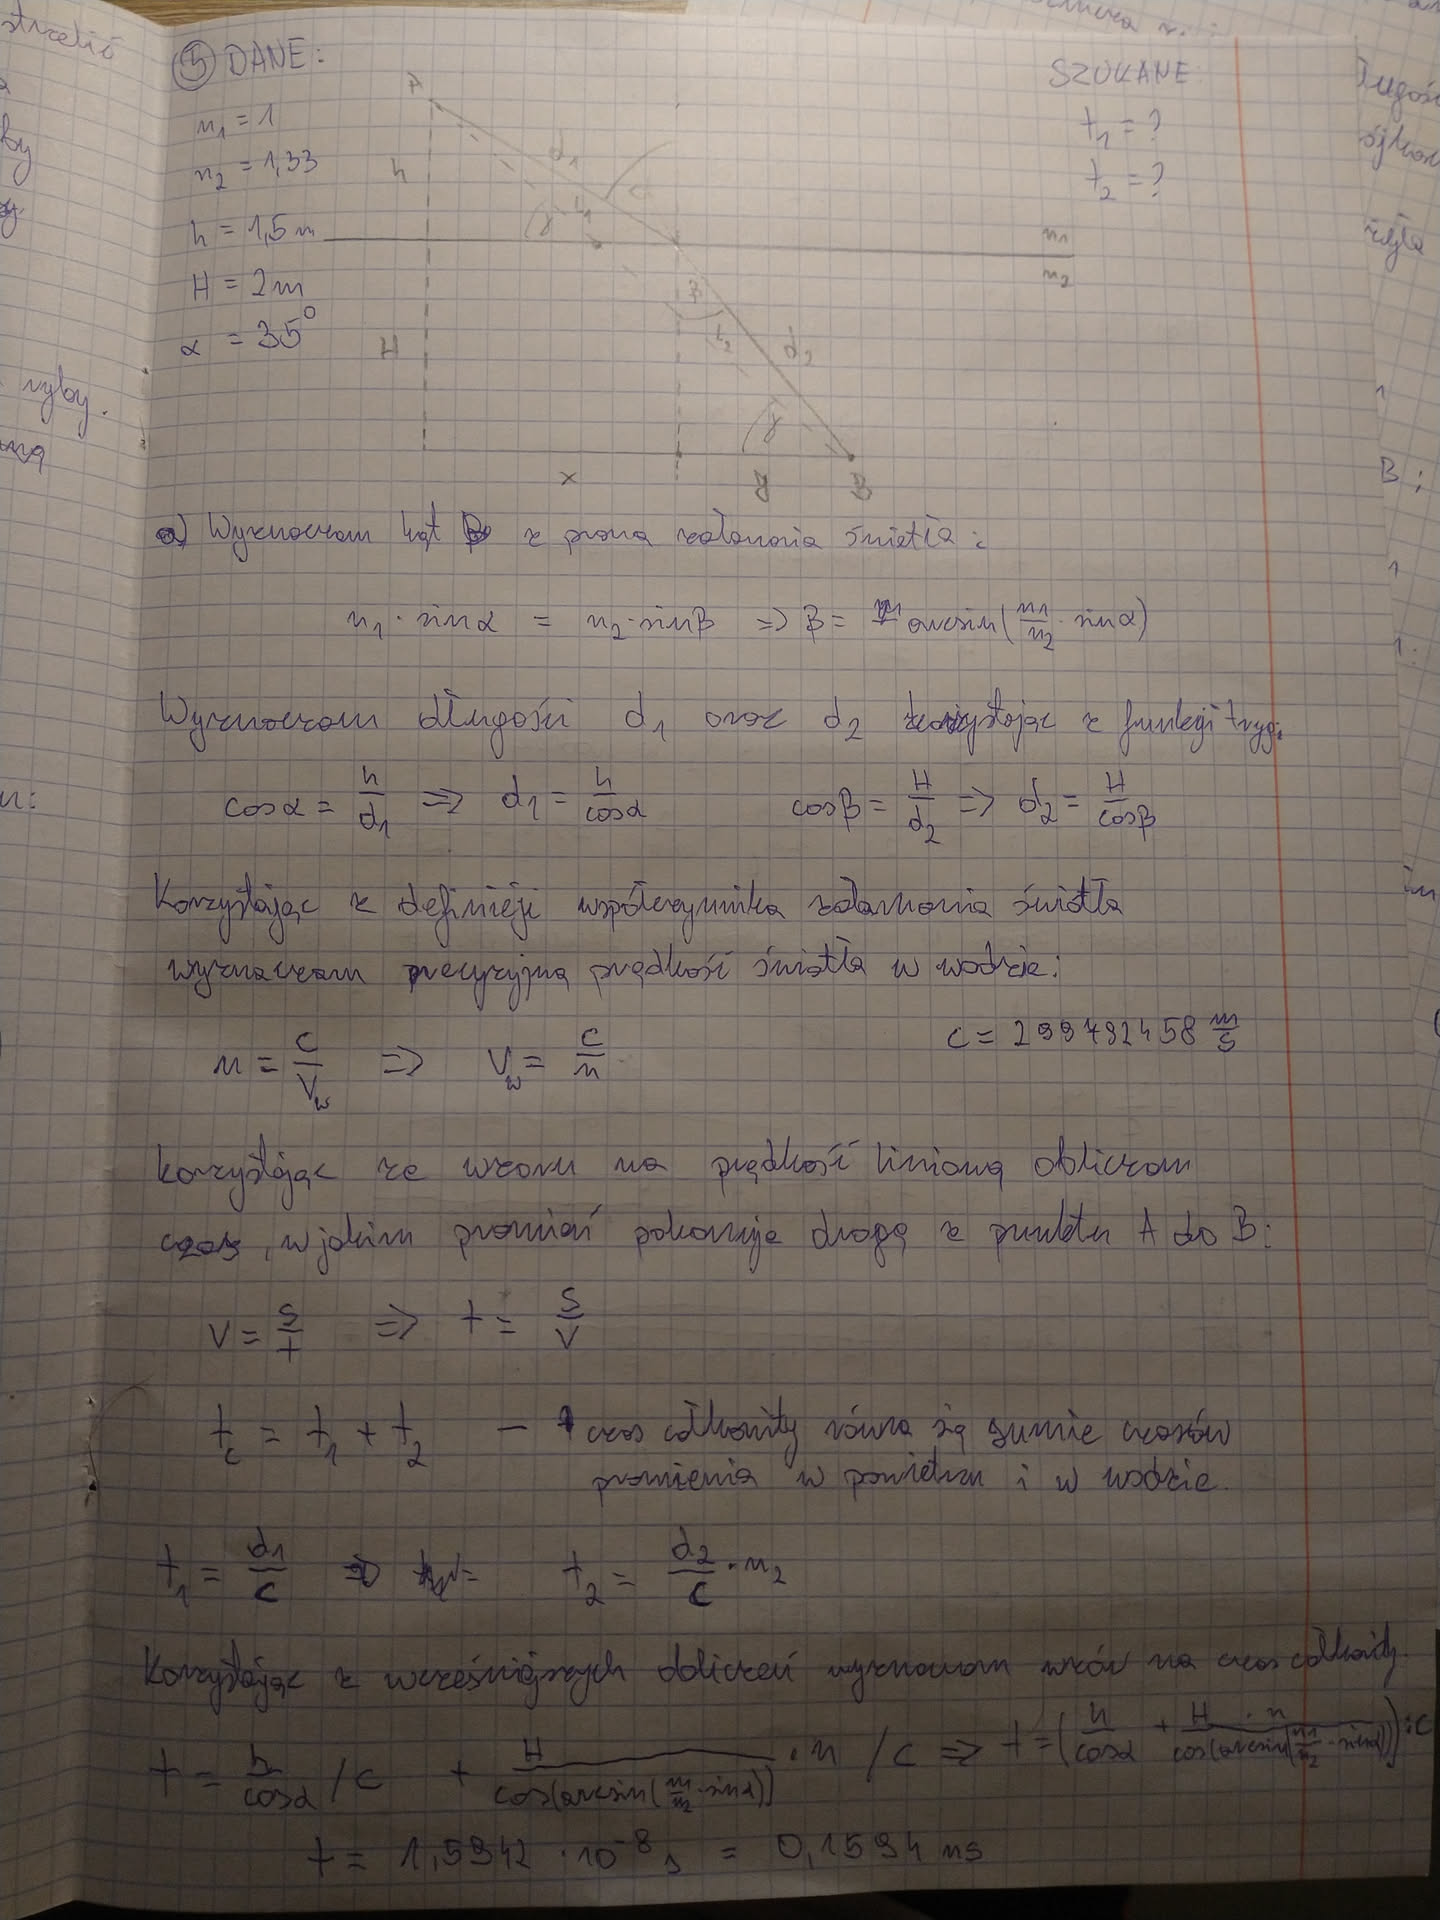 strzelić
⑤ DANE:
SZUKANE
n₁ = 1
n₂ = 1,33
h = 1,5 m
H = 2m
α = 35°
t₁ = ?
t₂ = ?
A
h
d₁
γ
l₁
n₁
n₂
H
β
l₂
d₂
γ
x
y
B
ryby.
a) Wyznaczam kąt β z prawa załamania światła:
n₁ · sinα = n₂ · sinβ => β = arcsin(n₁/n₂ · sinα)
Wyznaczam długości d₁ oraz d₂ korzystając z funkcji tryg:
cosα = h/d₁ => d₁ = h/cosα cosβ = H/d₂ => d₂ = H/cosβ
Korzystając z definicji współczynnika załamania światła
wyznaczam precyzyjną prędkość światła w wodzie:
c = 299792458 m/s
n = c/V_w => V_w = c/n
Korzystając ze wzoru na prędkość liniową obliczam
czas, w jakim promień pokonuje drogę z punktu A do B:
v = s/t => t = s/v
t_c = t₁ + t₂ – czas całkowity równa się sumie czasów
promienia w powietrzu i w wodzie.
t₁ = d₁/c t₂ = d₂/c · n₂
Korzystając z wcześniejszych obliczeń wyznaczam wzór na czas całkowity.
t = h/cosα /c + H/cos(arcsin(n₁/n₂ · sinα)) · n /c => t = (h/cosα + H · n/cos(arcsin(n₁/n₂ · sinα))) : c
t = 1,5942 · 10⁻⁸ s = 0,1594 ns